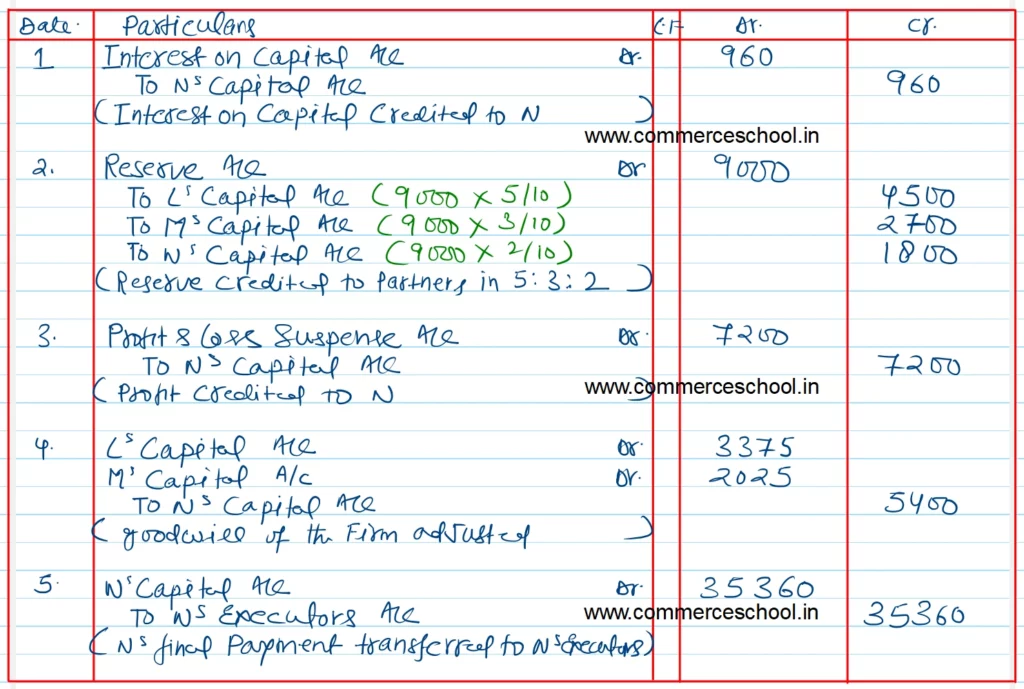 Date. Particulars L.F Dr. Cr.
1 Interest on Capital A/c Dr. 960
To N's Capital A/c 960
(Interest on Capital Credited to N)
www.commerceschool.in
2. Reserve A/c Dr 9000
To L's Capital A/c (9000 x 5/10) 4500
To M's Capital A/c (9000 x 3/10) 2700
To N's Capital A/c (9000 x 2/10) 1800
(Reserve Credited to Partners in 5:3:2)
3. Profit & Loss Suspense A/c Dr. 7200
To N's Capital A/c 7200
(Profit Credited TO N) www.commerceschool.in
4. L's Capital A/c Dr. 3375
M's Capital A/c Dr. 2025
To N's Capital A/c 5400
(goodwill of the Firm adjusted)
5. N's Capital A/c Dr. 35360
To N's Executors A/c www.commerceschool.in 35360
(N's final Payment transferred to N's Executors)